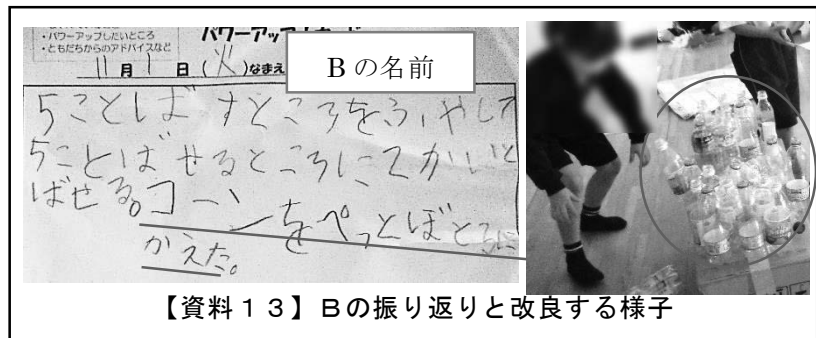 ・パワーアップしたいところ
・ともだちからのアドバイスなど
パワーアップ
11月1日(火)なまえ
Bの名前
5ことばすところをふやして
5ことばせるところに2かいと
ばせる。コーンをぺっとぼとるに
かえた。
【資料13】Bの振り返りと改良する様子